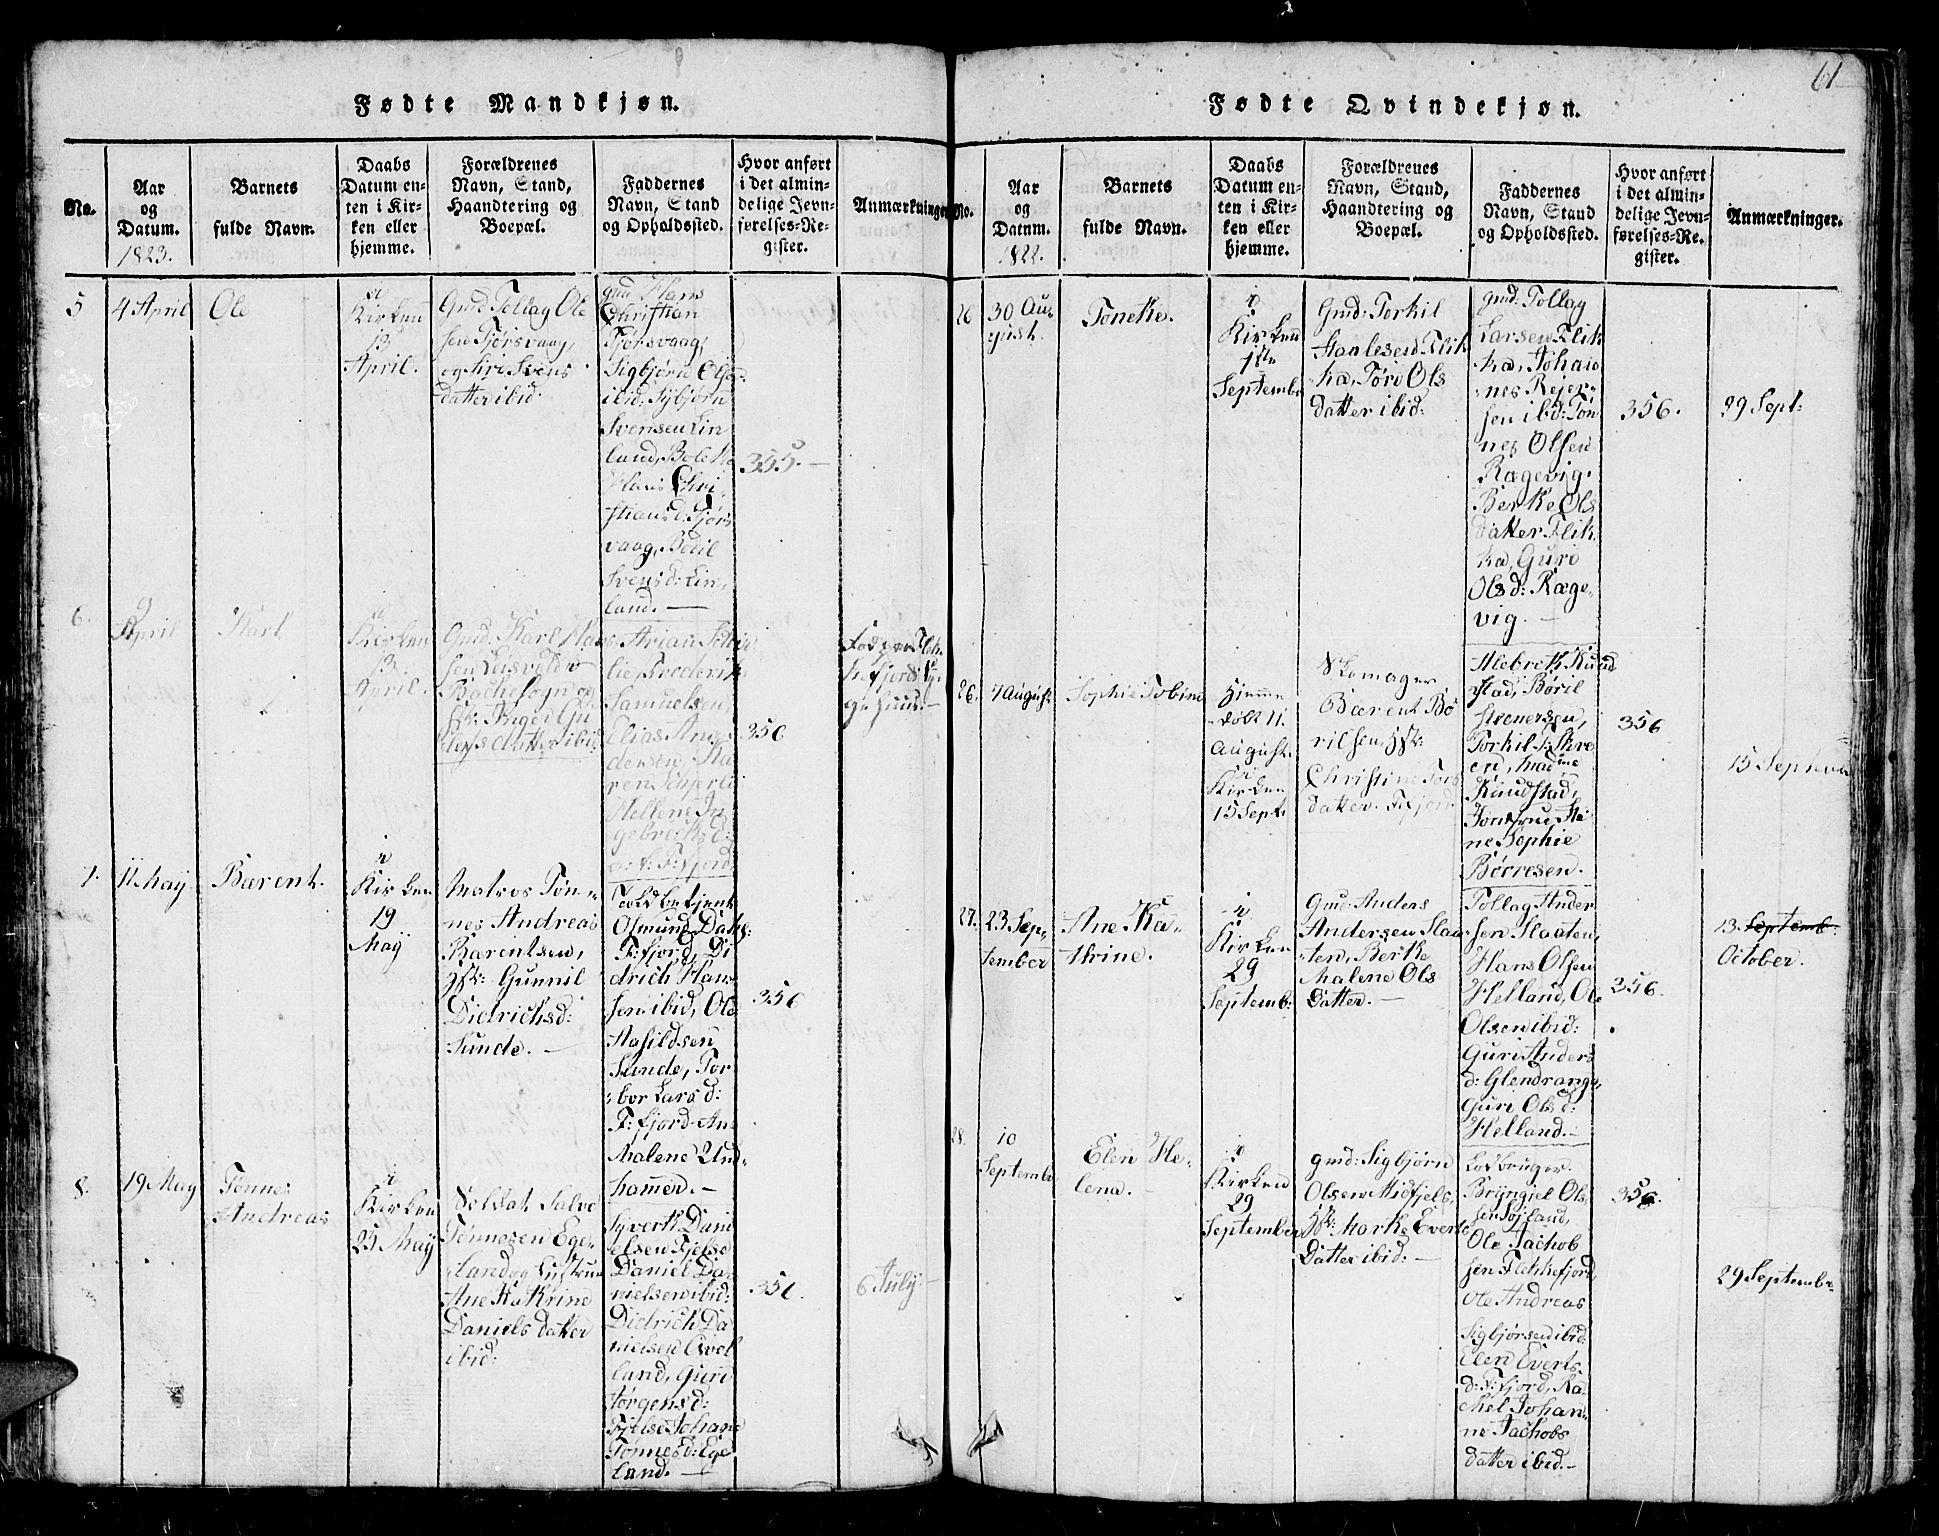 61
Fødte Mandkjøn.
No.
Aar
og
Datum.
1823.
Barnets
fulde Navn.
Daabs
Datum en-
ten i Kir-
ken eller
hjemme.
Forældrenes
Navn, Stand,
Haandtering og
Boepæl.
Faddernes
Navn, Stand
og Opholdssted.
Hvor anført
i det almin-
delige Jevn-
førelses-Re-
gister.
Anmærkninger
5
4 April
Ole
i
Kirken
13
April.
Gmd: Tollag Ole
sen Fjørsvaag,
og Siri Svens
datter ibid
gmd Hans
Christian
Fjørsvaag,
Sigbjørn Ols:
ibid, Sybjørn
Svensen Lin
land, Bolette
Hans Chri
stians d: Fjørs
vaag, Bodil
Svensd: Lin,
land. —
355. —
6.
9
April
Karl
i
Kirken
13
April.
Gmd: Karl Han
sen
Bachesogn og
datter ibid
Arian
Frederik
Samuelsen,
Elias An
dersen, Ka
ren
Hellene In
gebrechts d:
F:fjord
356
7.
11 May
Bærent.
i
Kirken
19
May
Matros Tøn-
nes Andreas
Barentsen,
Hst: Gunnil
Didrichsd:
Sunde. —
Toldbetjent
Osmund Dahs:
F:fjord, Di
drich Han
sen ibid, Ole
Stasildsen
Sunde, Tor
bor Lars d:
F:fjord An
Malene Und-
hammen. —
356
8.
19 May
Tønnes
Andreas
i
Kirken
25 May
Soldat Salve
Tønnesen Ege-
land og Hustrue
Ane Katrine
Daniels datter
ibid:
Syvert Dani
elsen Fjelse
Daniel Da-
nielsen ibid:
Didrich Da
nielsen Qvel
land, Guri
Jørgensd:
Fjelse Johane
Tønnesd: Ege
land. —
356.
6 July —
Fødte Qvindekjøn.
No.
Aar
og
Datum.
1822.
Barnets
fulde Navn.
Daabs
Datum en-
ten i Kir-
ken eller
hjemme.
Forældrenes
Navn, Stand,
Haandtering og
Boepæl.
Faddernes
Navn, Stand
og Opholdssted.
Hvor anført
i det almin-
delige Jevn-
førelses-Re-
gister.
Anmærkninger.
26
30 Au-
gust.
Tonette.
i
Kirken
1ste
September
Gmd: Torkil
Stanlesen Flik
ka, Tøre Ols
datter ibid:
gmd: Tollag
Larsen Flik
ka, Johan
nes Rejer-
sen ibid: Tøn
nes Olsen
Rægevig.
Berte Ols
datter Flik
ka, Guri
Ols d: Ræge-
vig. —
356.
29 Sept:
26.
7 August
Sophie Tobine
Hjemme
døbt 11.
August.
i
Kirken
15 Sept:
Skomager
Bærent Bø
rilsen, Hst:
Christine Tørs
datter. F:fjord
Alebrekt Knud
stad, Børil
Torkil
Madme
Knudstad,
Jomfrue Sti
ne Sophie
Børresen.
356
15 Septemb
27.
23 Sep-
tember
Ane Ka-
thrine.
i
Kirken
29
Septemb:
Gmd: Anders
Andersen Slaa-
ten, Berte
Malene Ols
Datter. —
Tollag Ander
sen Slaaten,
Hans Olsen
Helland, Ole
Olsen ibid:
Guri Anders
d: Glendrange,
Guri Ols d:
Helland. —
356.
13. Septemb:
October.
28.
10
September
Elen He-
lena. —
i
Kirken
29
September
gmd: Sigbjørn
Olsen Midfjels,
Hst: Marte Everts
Datter ibid: —
Lodbruger
Bryngiel Ol-
sen Søjland,
Ole Jachob
sen Flekkefjord,
Ole Andreas
Sigbjørsen ibid
Elen Everts
d: F:fjord, Ra
chel Johan-
ne Jachobs
datter ibid. —
356.
29 Septembr.